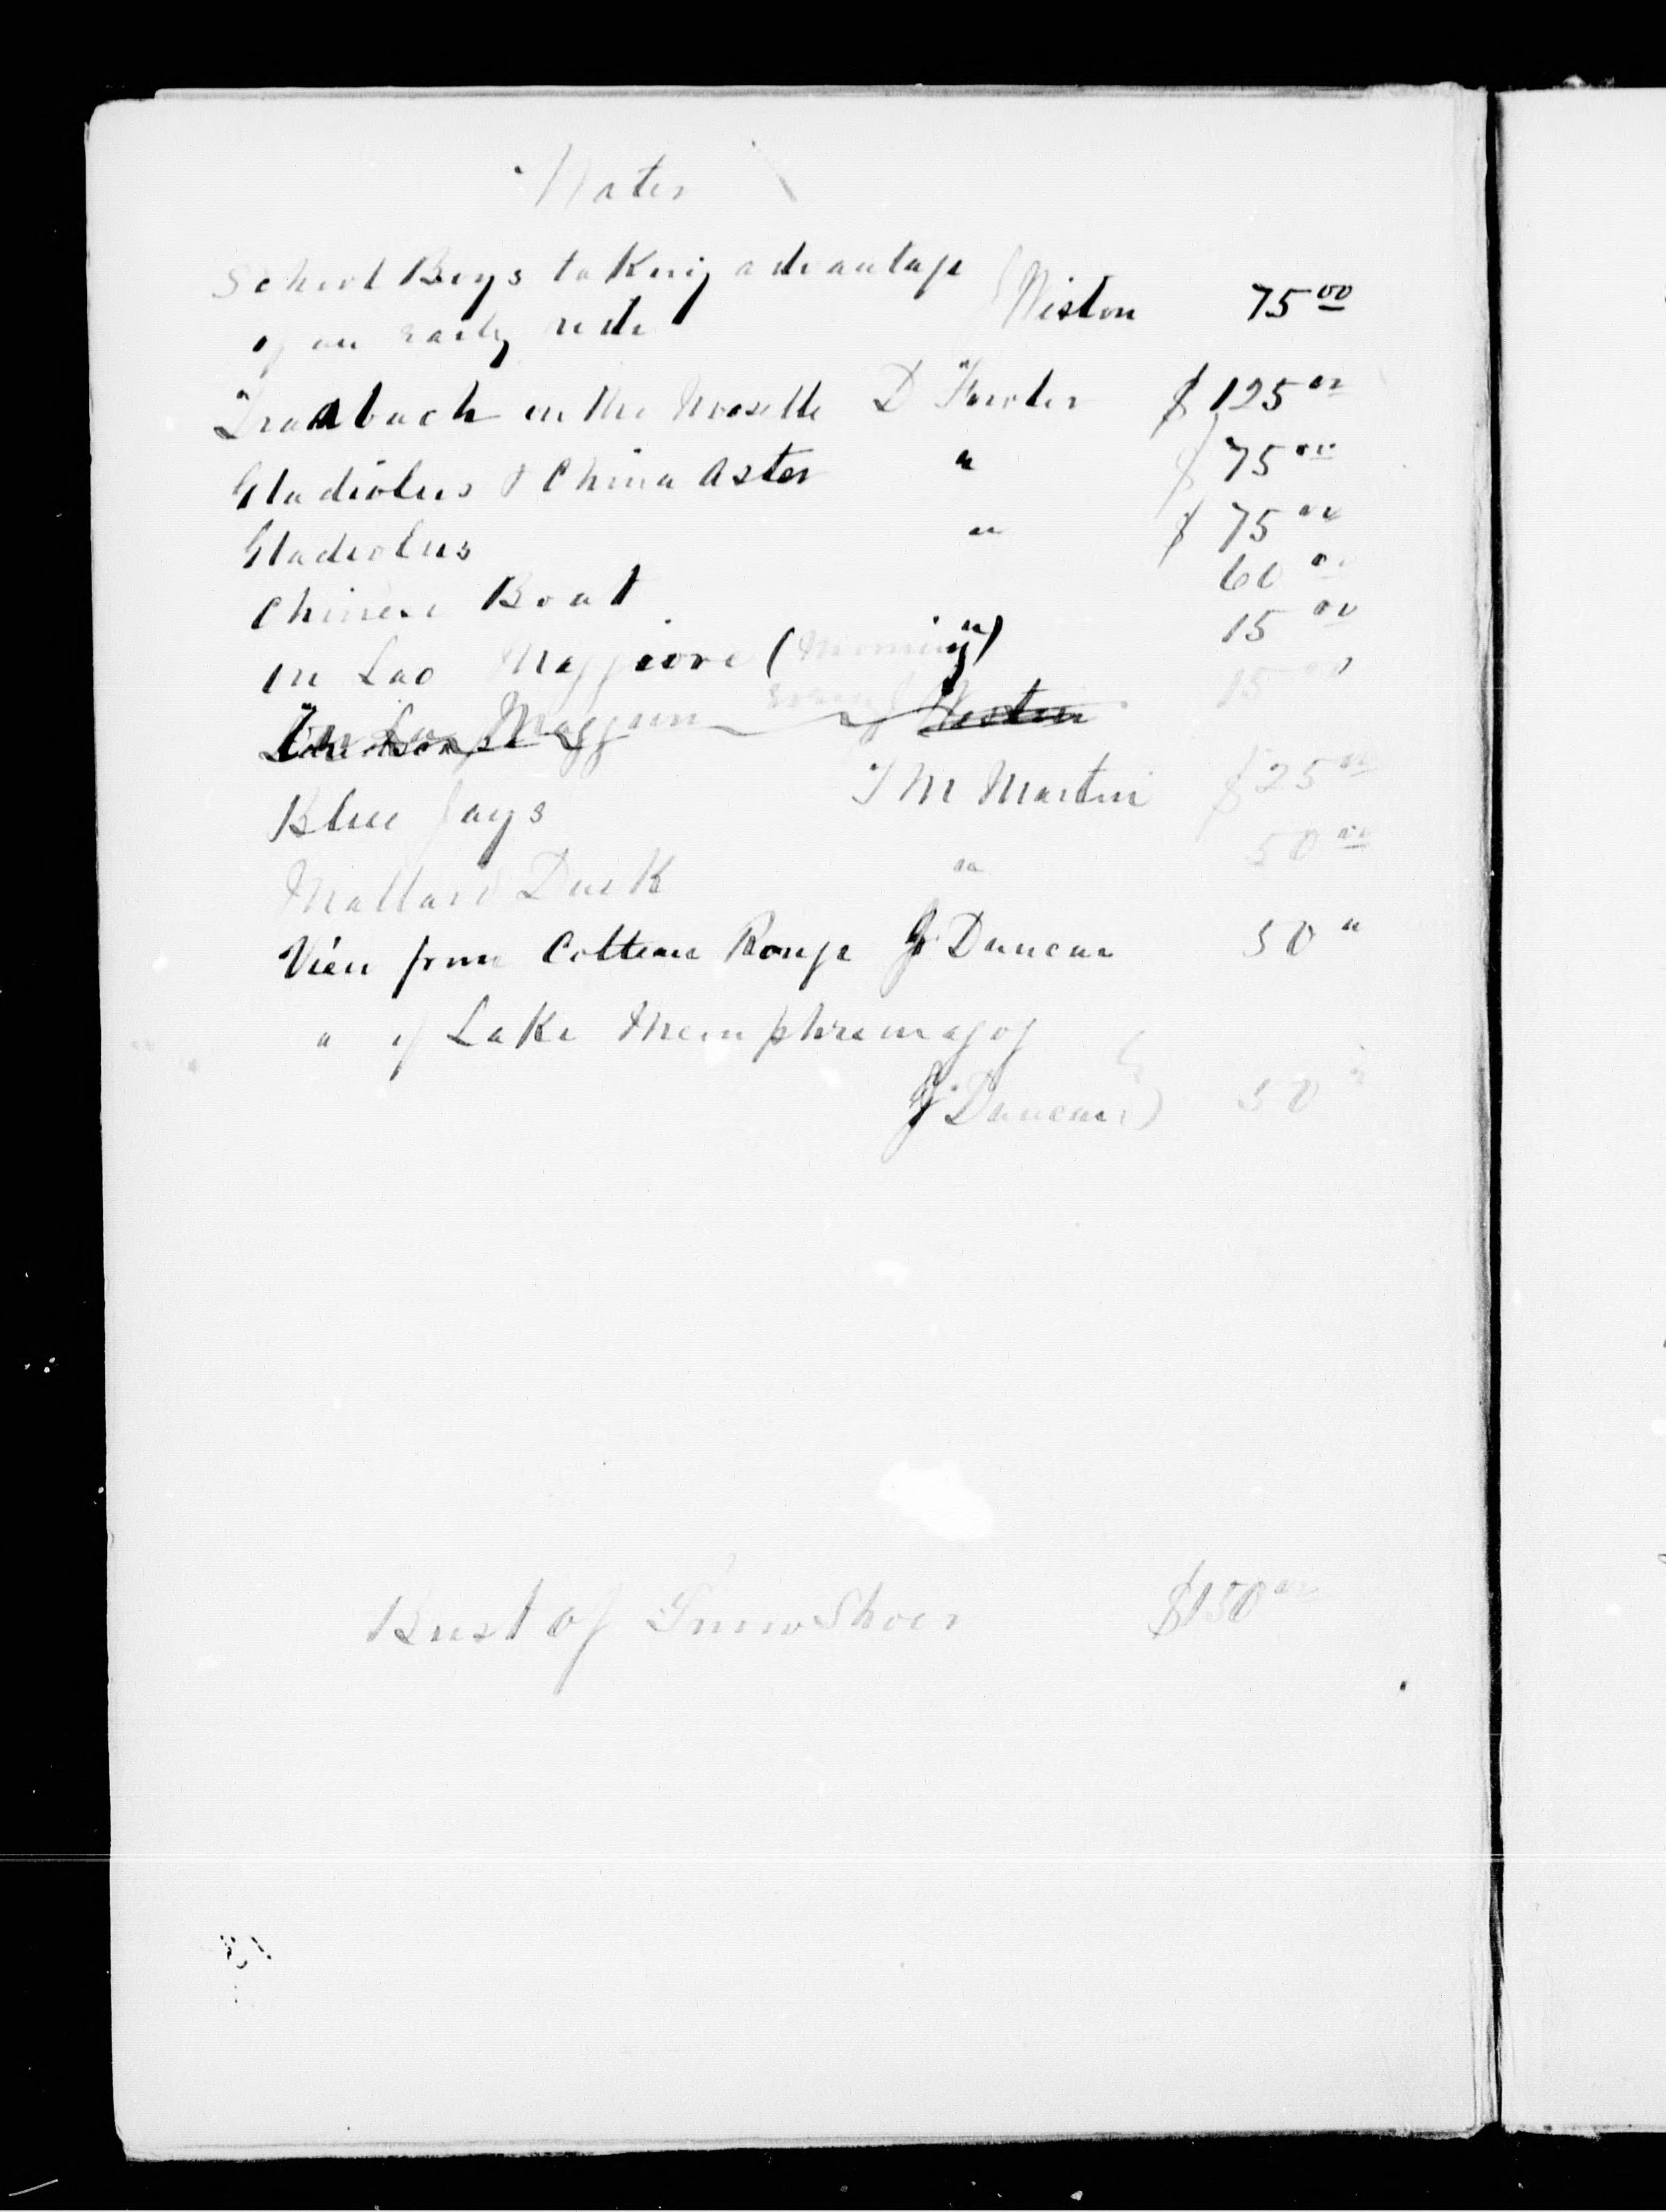 Notes
School Boys taking advantage
of an early ride Weston 75 00
Trarbach on the Moselle D Fowler $125 00
Gladiolus & China Aster " $75 00
Gladiolus " $75 00
Chinese Boat 60 00
In Lao Maggiore (Morning) " 15 00
In Lao Maggiore Weston 15 00
Blue Jays T M Martin $25 00
Mallard Duck " 50 00
View from Cotteau Rouge J Duncan 50 "
" of Lake Memphremagog
J Duncan) 50 "
Bust of Snow Shoer $150 00